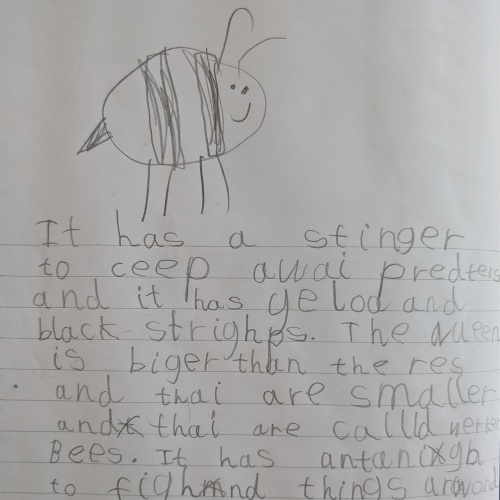 It has a stinger
to ceep awai predters
and it has yelod and
black strighps. The Queen
is biger than the res
and thai are smaller
and thai are calld werker
Bees. It has antanixgh
to fighnd things arawond